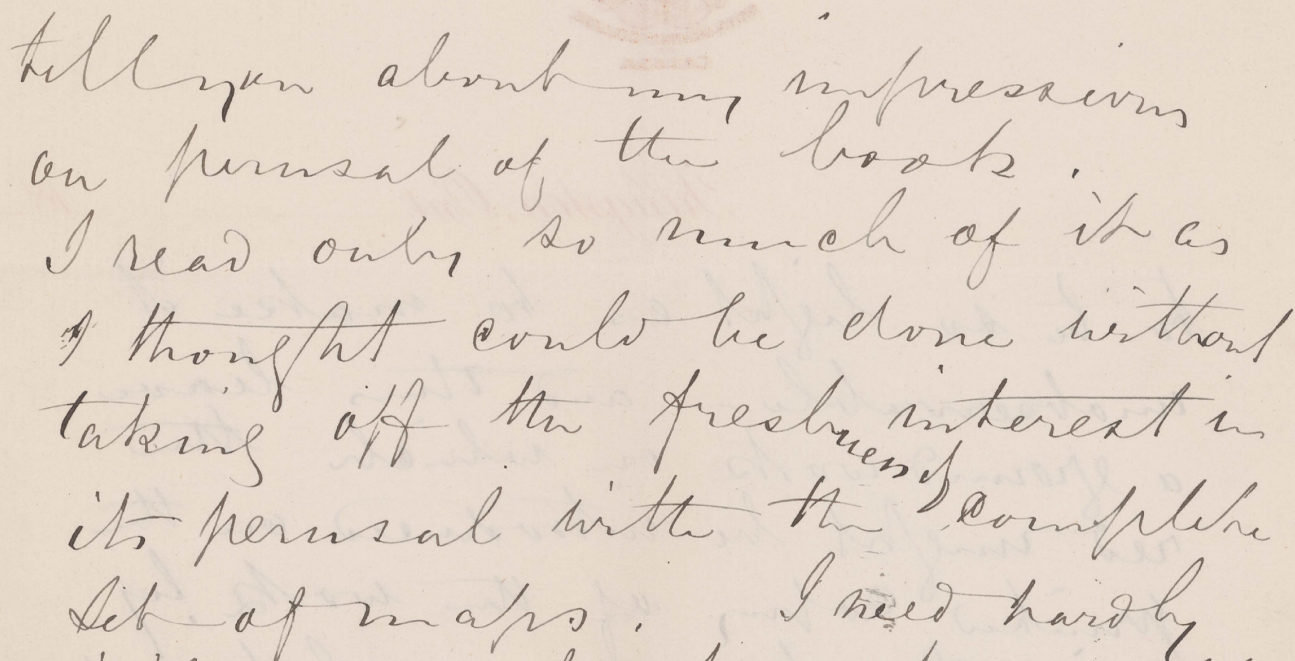 tell you about my impressions
on perusal of the book.
I read only so much of it as
I thought could be done without
taking off the freshness of interest in
its perusal with the complete
set of maps. I need hardly